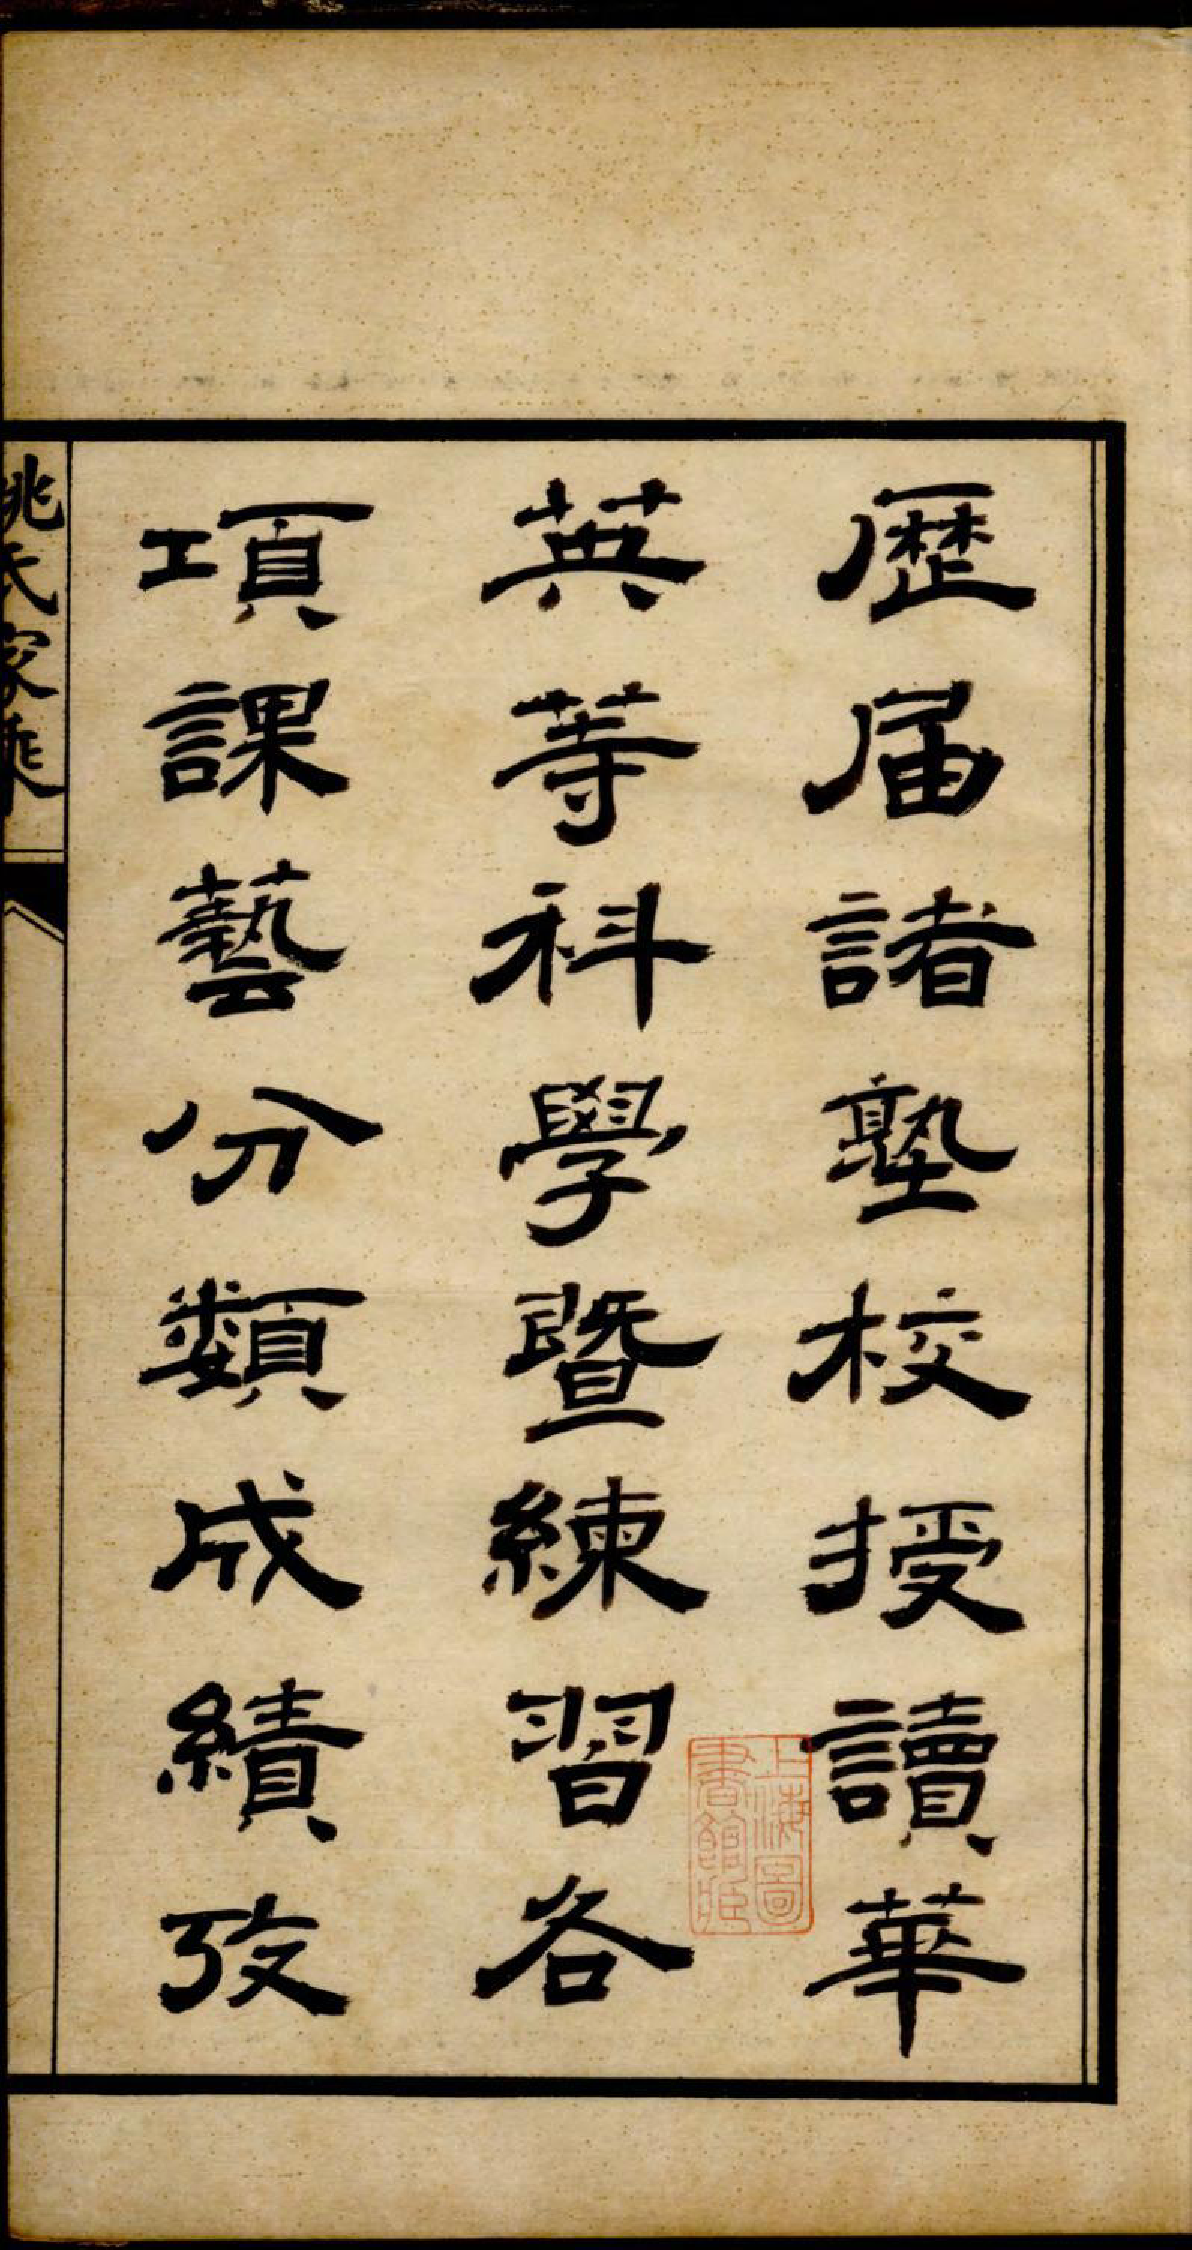 歷届諸塾校授讀華
英等科學暨練習各
項課藝分類成績攷
姚氏家乘
上海圖
書館藏